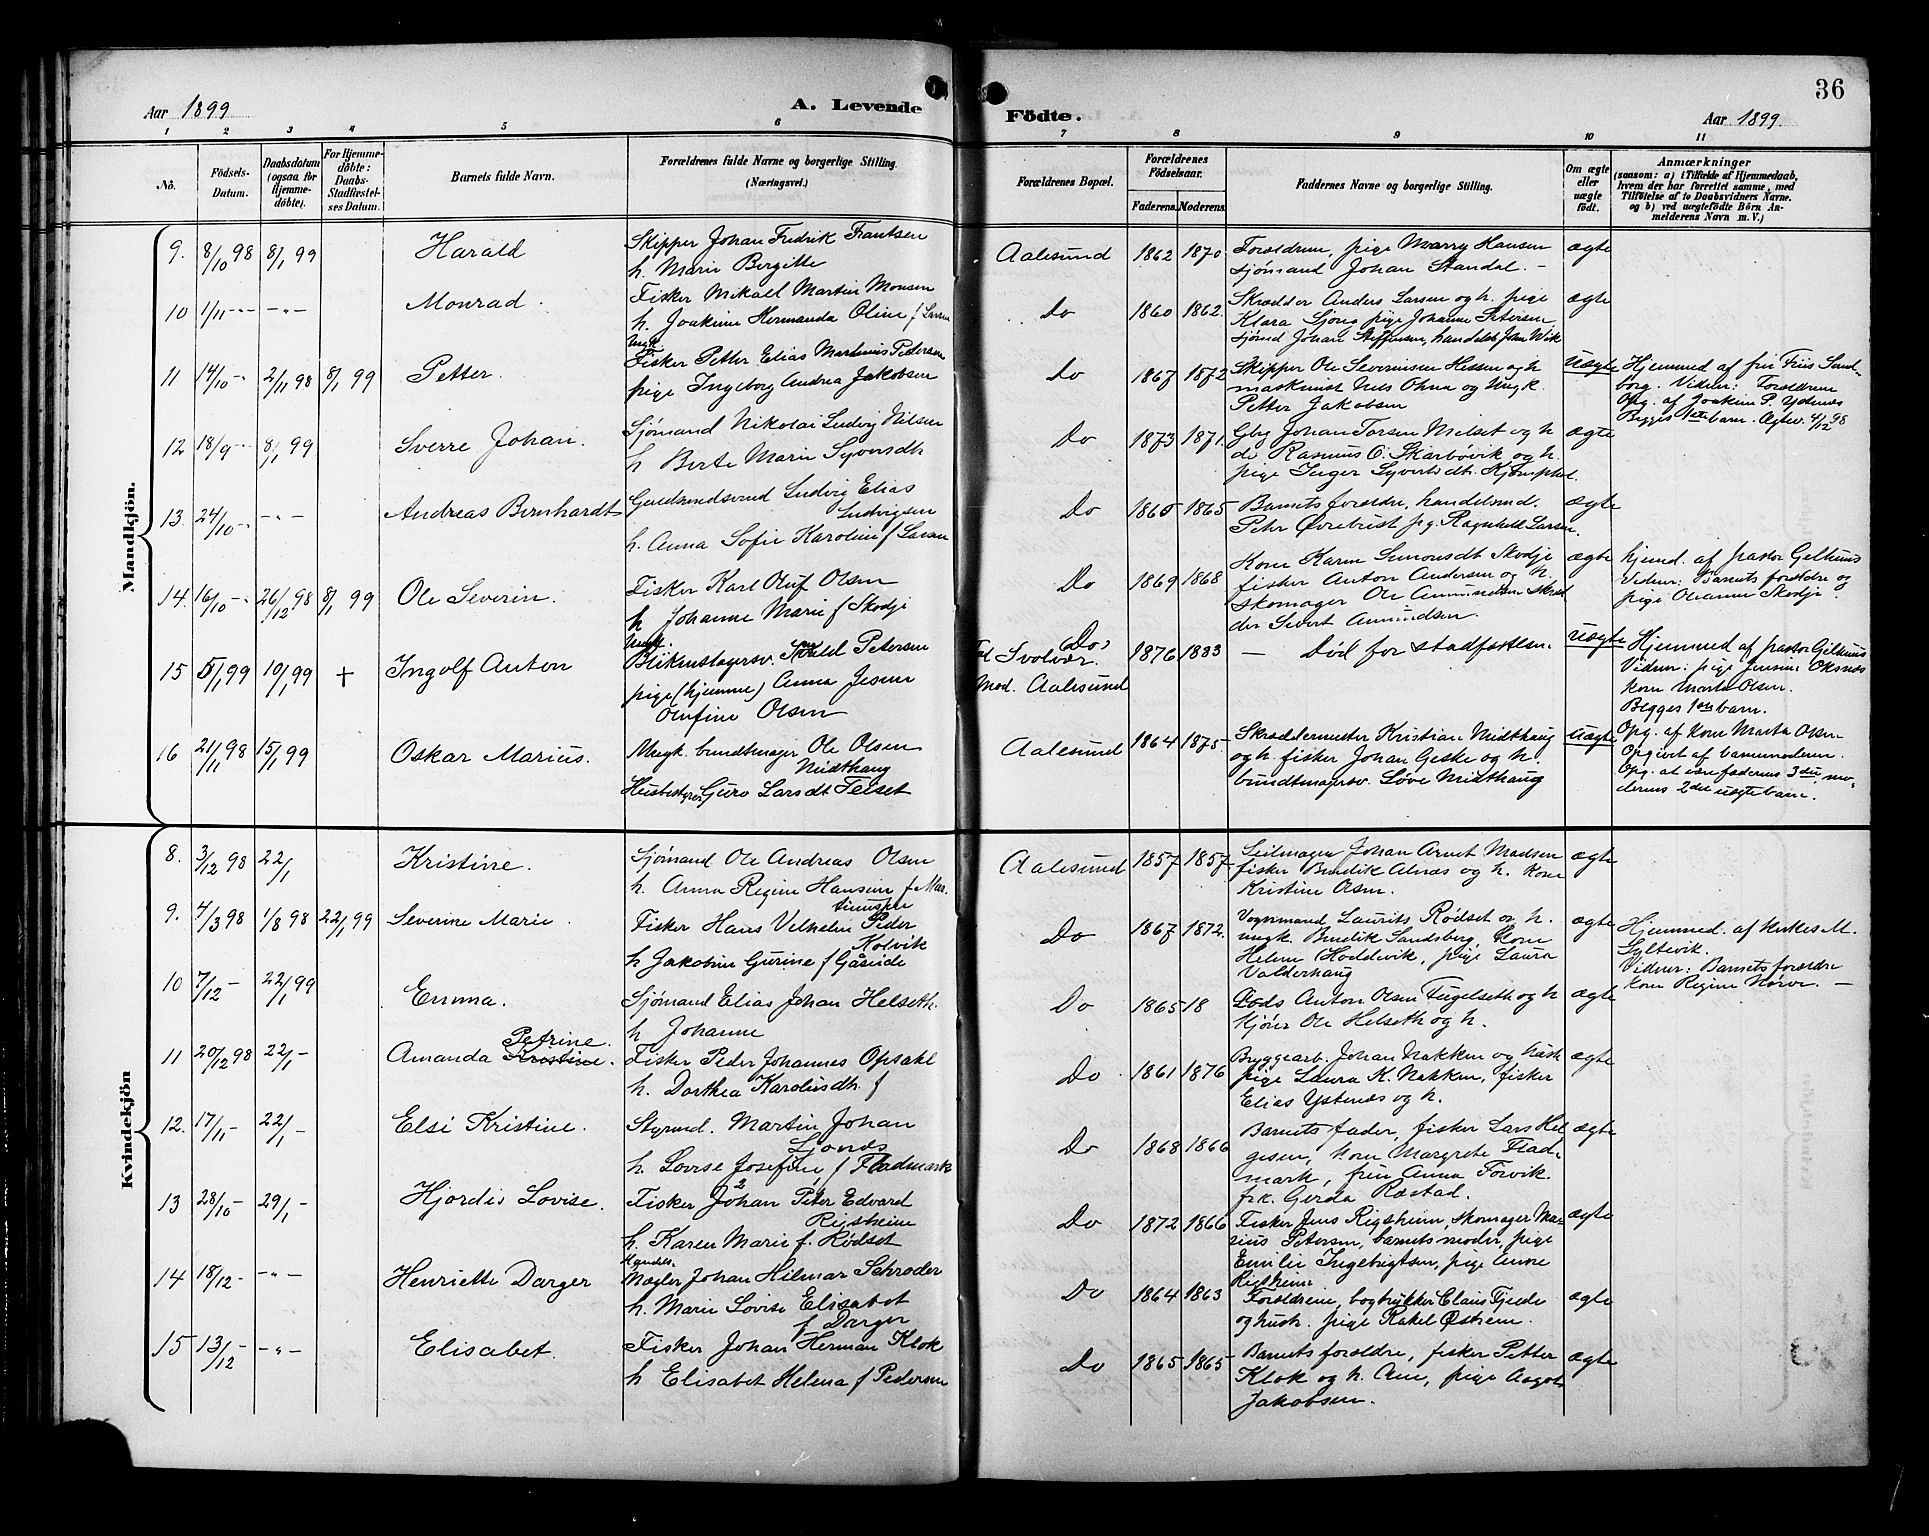 36
Aar 1899
A. Levende
Födte.
Aar 1899.
1 2 3 4 5 6 7 8 9 10 11
No.
Födsels-
Datum.
Daabsdatum
(ogsaa for
Hjemme-
döbte).
For Hjemme-
döbte:
Daabs-
Stadfæstel-
ses Datum.
Barnets fulde Navn.
Forældrenes fulde Navne og borgerlige Stilling.
(Næringsvei.)
Forældrenes Bopæl.
Forældrenes
Födselsaar.
Faderens. Moderens.
Faddernes Navne og borgerlige Stilling.
Om ægte
eller
uægte
födt.
Anmærkninger
(saasom: a) i Tilfælde af Hjemmedaab,
hvem der har forrettet samme, med
Tilföielse af to Daabsvidners Navne.
og b) ved uægtefödte Börn An-
melderens Navn m. V.)
Mandkjön.
9. 8/10 98 8/1 99 Harald
Skipper Johan Fredrik Frantsen
h. Marie Bergitte
Aalesund 1862 1870
Forældrene, pige Marry Hansen
sjömand Johan Standal. –
ægte
10 1/11 -"- -"- Monrad.
Fisker Mikall Martin Monsen
h. Joakine Hermanda Oline f Larsen
Do 1860 1862.
Skrædder Anders Larsen og h. pige
Klara Sjons pige Johanne Petersen
sjömd Johan Steffensen, handelsb. Wik
ægte
11 14/10 -"- 2/11 98 8/1 99 Petter.
Ungk.
Fisker Petter Elias Martinus Petersen
pige Ingeborg Andrea Jakobsen
Do 1867 1872
Skipper Ole Severinsen Hessen og h
maskinist Nils Ohna og Ungk.
Petter Jakobsen
Uægte
Hjemmed af frü Friis Sand-
borg. Vidner: Forældrene
Opg. af Joakim P. Ystenes
Begges 1ste barn. Ægtev. 4/12 98
12 18/9 -"- 8/1 99 Sverre Johan.
Sjömand Nikolai Ludvig Nilsen
h Berte Marie Syversdtr
Do 1873 1871.
Gbg Johan Tarsen Melset og h
do Rasmus O. Skarbövik og h.
pige Inger Syvertsdt.
ægte
13. 24/10 -"- -"- Andreas Bernhardt
Guldsmedsvend Ludvig Elias
Ludvigsen
h. Anna Sofie Karoline f Larsen
Do 1865 1865
Barnets forældre, handelsmd.
Peter Øvrebust pg. Ragnhild Larsen.
ægte
14. 16/10 -"- 26/12 98 8/1 99 Ole Severin.
Fisker Karl Oluf Olsen
h Johanne Marie f Skodje
Do 1869 1868
Kone Karen Simonsdt Skodje
fisker Anton Andersen og h.
skomager Ole Amundsen Skræd
der Sivert Amundsen.
ægte
hjemd. af pastor Gelhuus
Vidner: Barnets forældre og
pige Oleanne Skodje.
15 5/1 99 10/1 99 + Ingolf Anton
Ungk.
Blikenslagersv. Petersen
pige (hjemme) Anna Jesine
Olufine Olsen
Do,
Fad Svolvær.
Mod. Aalesund
1876 1883
– Död för stadfæstelsen.
Uægte
Hjemmed af pastor Gelhuus
Vidner: pige Jensine Oksnæs
kone Marta Olsen.
Begges 1ste barn.
16 21/11 98 15/1 99 Oskar Marius.
Ungk. bundtmager Ole Olsen
Midthaug
Husbestyrer Guro Larsdt Felset
Aalesund 1864 1875.
Skræddermester Kristian Midthaug
og h. fisker Johan Geske og h.
bundtmagersv. Löve Midthaug
Uægte
Opg. af kone Marta Olsen
Opgivet af barnemoderen.
Opg. at være faderens 3die mo-
derens 2det uægte barn.
Kvindekjön
8. 3/12 98 22/1 Kristine.
Sjömand Ole Andreas Olsen
h. Anna Regine Hansine f Mar-
tinussen
Aalesund 1857 1857
Seilmager Johan Arnt Madsen
fisker Bendik Alnæs og h. kone
Kristine Olsen.
ægte
9. 4/3 98 1/8 98 22/1 99 Severine Marie.
Fisker Hans Vilhelm Peder
Kolvik
h Jakobine Gurine f Gåseide
Do 1867 1872.
Vognmand Laurits Rødset og h.
ungk. Bendik Sandsberg, kone
Helene Hoddevik, pige Laura
Valderhaug
ægte
Hjemmed. af kirkes M.
Gyltevik.
Vidner: Barnets forældre
kone Regine Nörve. –
10 7/12 - 22/1 99 Emma.
Sjömand Elias Johan Helseth.
h Johanne
Do 1865 18
Lods Anton Olsen Fugelseth og h
kjörer Ole Helseth og h.
ægte
11 20/12 98 22/1 - Amanda Kristine. Petrine.
Fisker Peder Johannes Opsahl
h. Dorthea Karolinedh. f
Do 1861 1876
Bryggearb. Johan Nakken og hust
pige Laura K. Nakken, fisker
Elias Ystenæs og h.
ægte
12. 17/11 - 22/1 - Elsi Kristine.
Styrmd. Martin Johan
Sjonæs
h. Lovise Josefine f Fladmark
Do 1868 1866
Barnets fader, fisker Lars Hel
gesen, kone Margrete Flad-
mark, frue Anna Forvik.
frk. Gerda Ræstad.
ægte
13 28/10 - 29/1 - Hjordis Lovise.
Fisker Johan Peter Edvard
Rigsheim
h. Karen Marie f. Rödset
Do 1872 1866
Fisker Jens Rigsheim, skomager Ma-
rius Petersen, barnets moder, pige
Emilie Ingebrigtsen, pige Anne
Rigsheim
ægte
14 18/12 - -"- Henriette Darger
Handels.
Mægler Johan Hilmar Schröder
h. Marie Lovise Elisabet
f Darger
Do 1864 1863
Forældrene, bogtrykker Claus Fjede
og hustr. pige Rakel Østrem.
ægte
15 13/12 - -"- Elisabet.
Fisker Johan Herman Klok
h Elisabet Helena f Pedersen
Do 1865 1865
Barnets forældre, fisker Petter
Klok og h. Ane, pige Aagot
Jakobsen.
ægte